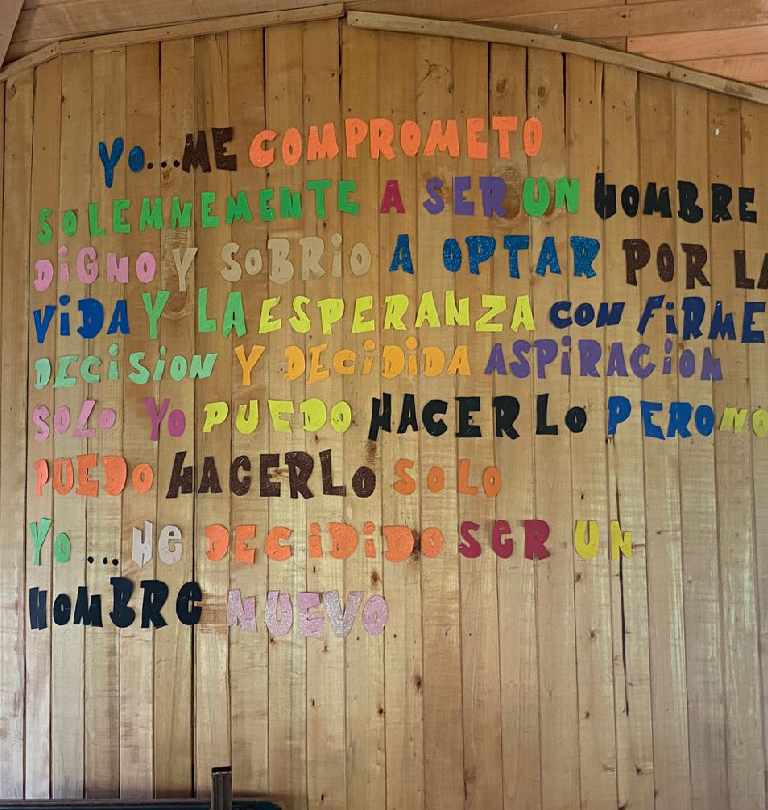 Yo...ME COMPROMETO
SOLEMNEMENTE A SER UN HOMBRE
DiGNO Y SOBRiO A OPTAR POR LA
ViDA Y LA ESPERANZA CON FiRME
DECiSiON Y DECiDiDA ASPiRACiON
SOLO YO PUEDO HACERLO PERO NO
PUEDO HACERLO SOLO
Yo ... HE DECIDiDO SER UN
HOMBRE NUEVO